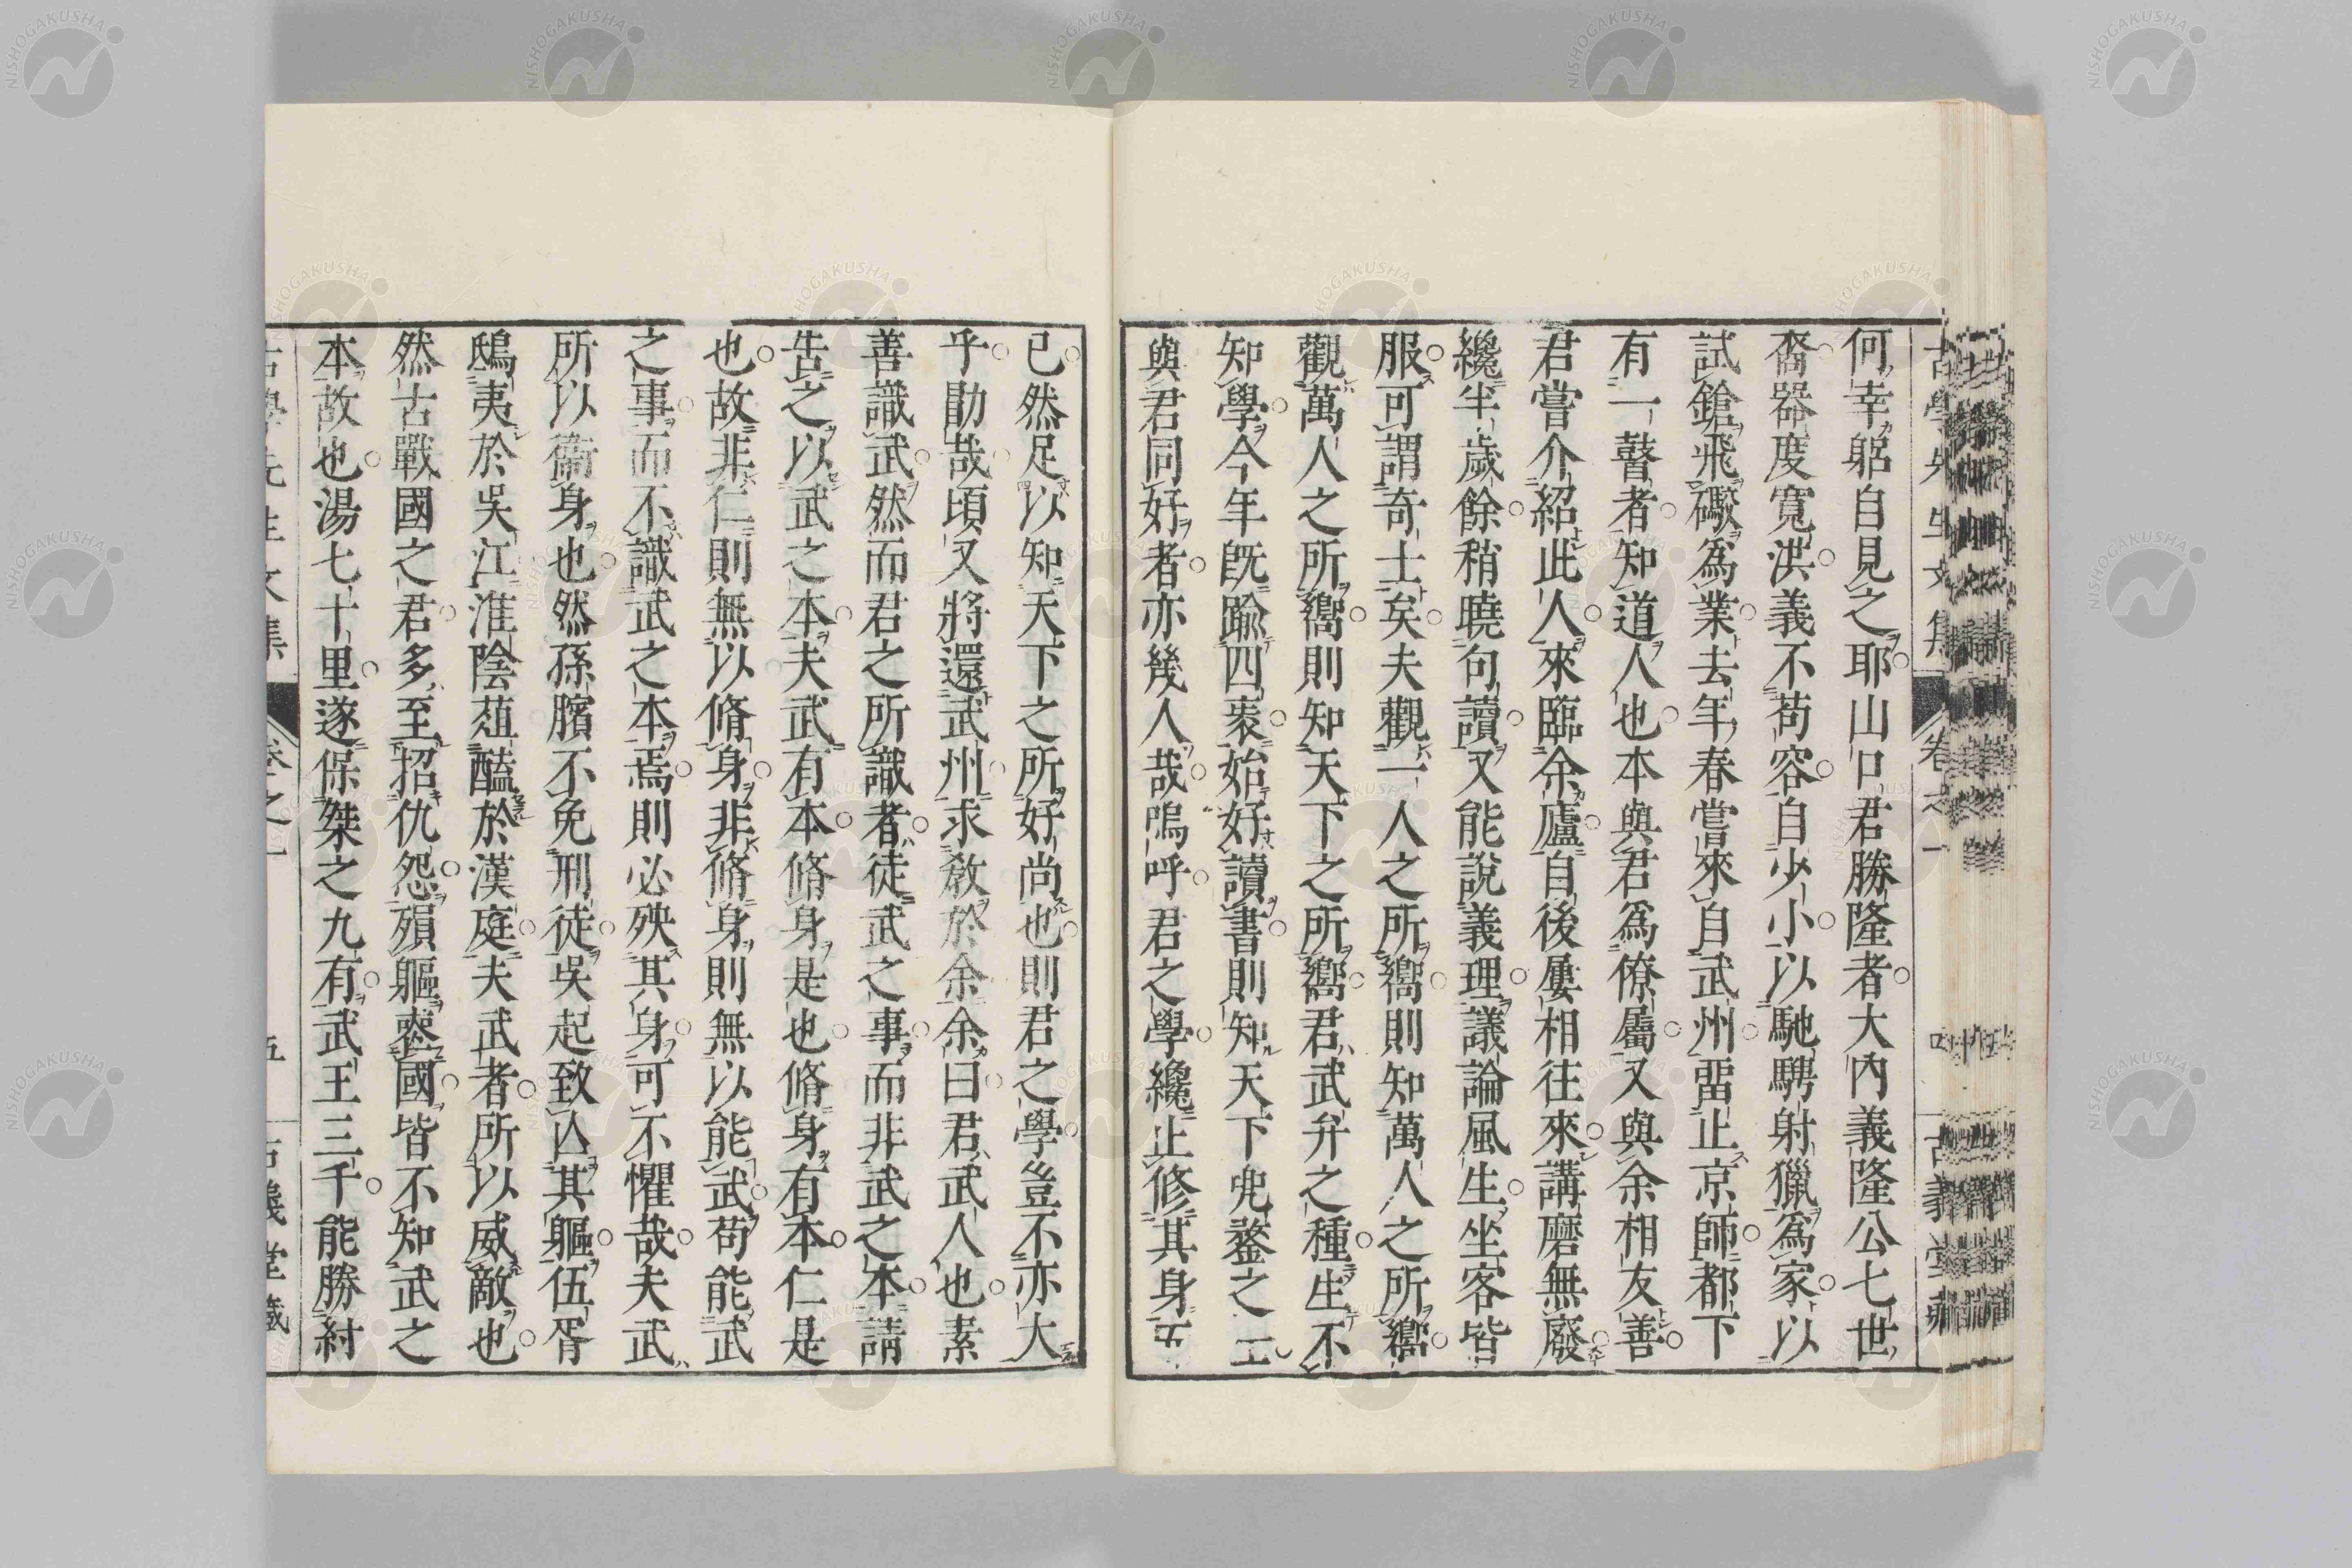 何幸躬自見之耶山口君勝隆者大內義隆公七世
裔器度寬洪義不苟容自少小以馳騁射獵爲家以
試鎗飛礮爲業去年春嘗來自武州畱止京師都下
有一瞽者知道人也本與君爲僚屬又與余相友善
君嘗介紹此人來臨余廬自後屢相往來講磨無廢
纔半歲餘稍曉句讀又能說義理議論風生坐客皆
服可謂奇士矣夫觀一人之所嚮則知萬人之所嚮
觀萬人之所嚮則知天下之所嚮君武弁之種生不
知學今年旣踰四袠始好讀書則知天下兜鍪之士
與君同好者亦幾人哉嗚呼君之學纔止修其身而
已然足以知天下之所好尚也則君之學豈不亦大
乎勖哉頃又將還武州求敎於余余曰君武人也素
善識武然而君之所識者徒武之事而非武之本請
告之以武之本夫武有本脩身是也脩身有本仁是
也故非仁則無以脩身非脩身則無以能武苟能武
之事而不識武之本焉則必殃其身可不懼哉夫武
所以衞身也然孫臏不免刑徒吳起致亾其軀伍胥
鴟夷於吳江淮陰葅醢於漢庭夫武者所以威敵也
然古戰國之君多至招仇怨殞軀喪國皆不知武之
本故也湯七十里遂保桀之九有武王三千能勝紂
古學先生文集 卷之一 四 古義堂藏
古學先生文集 卷之一 五 古義堂藏
NISHOGAKUSHA